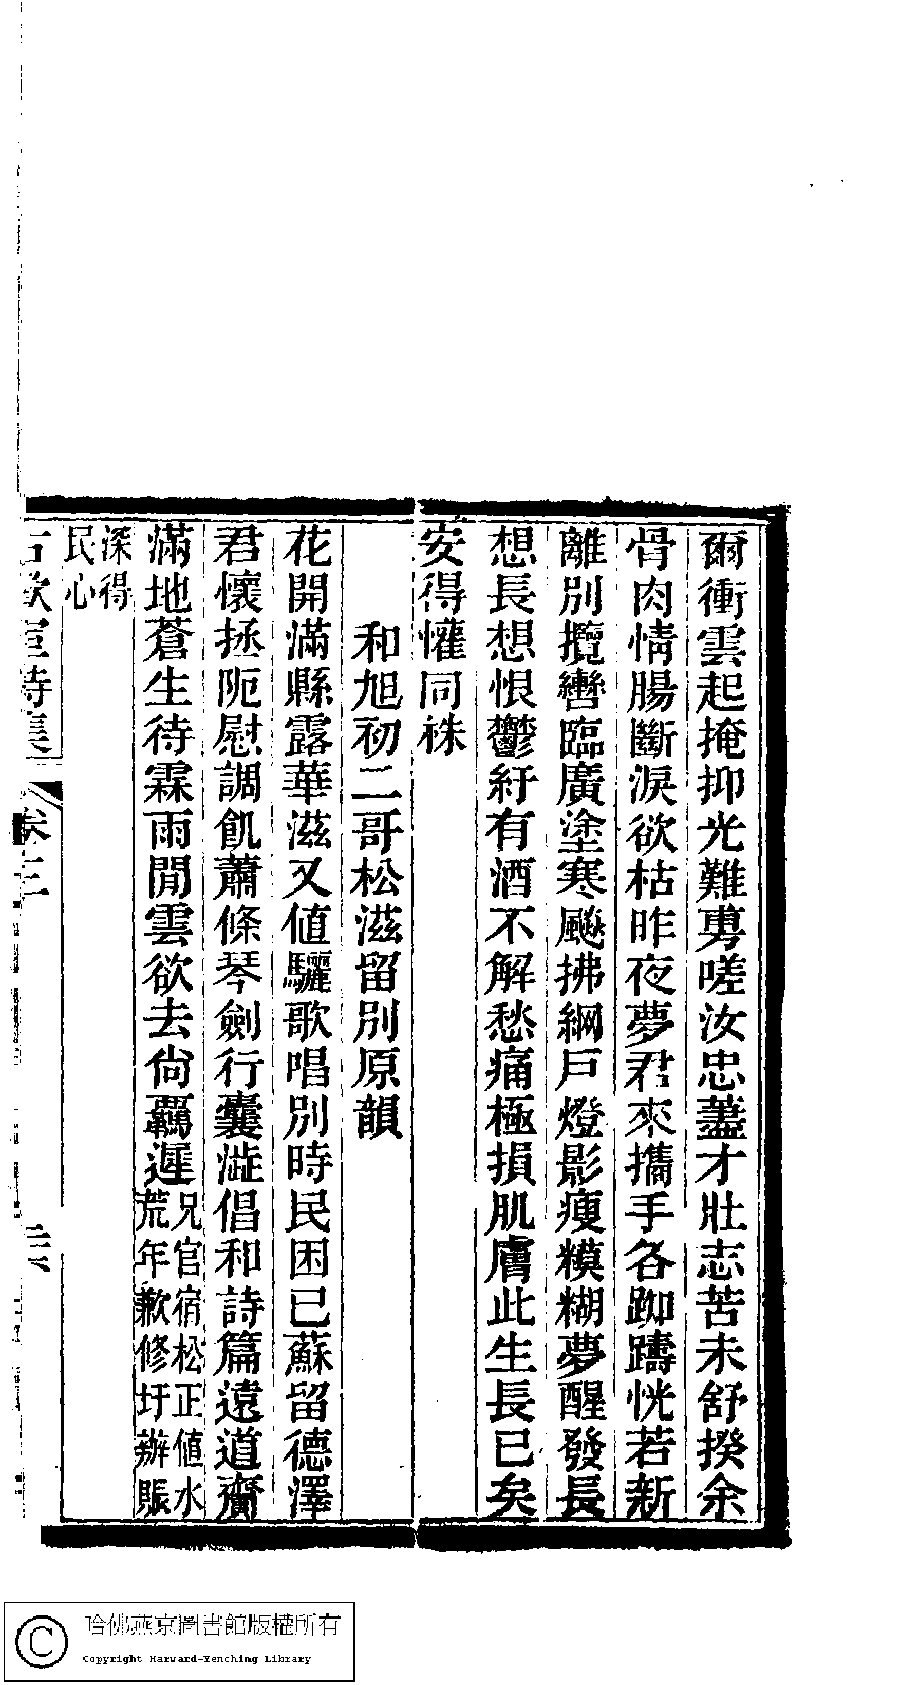 爾衝雲起掩抑光難旉嗟汝忠藎才壯志苦未舒揆余
骨肉情腸斷淚欲枯昨夜夢君來攜手各踟躊恍若新
離別攬轡臨廣塗寒颷拂網戶燈影瘦糢糊夢醒發長
想長想恨鬱紆有酒不解愁痛極損肌膚此生長已矣
安得懽同袾
和旭初二哥松滋留別原韻
花開滿縣露華滋又値驪歌唱別時民困已蘇留德澤
君懷拯阨慰調飢蕭條琴劍行囊澁倡和詩篇遠道齎
滿地蒼生待霖雨閒雲欲去尙羈遲兄官宿松正値水
荒年歉修圩辦賑
深得
民心
石歟軍詩集
卷三
共
哈佛燕京圖書館版權所有
Copyright Harvard-Yenching Library